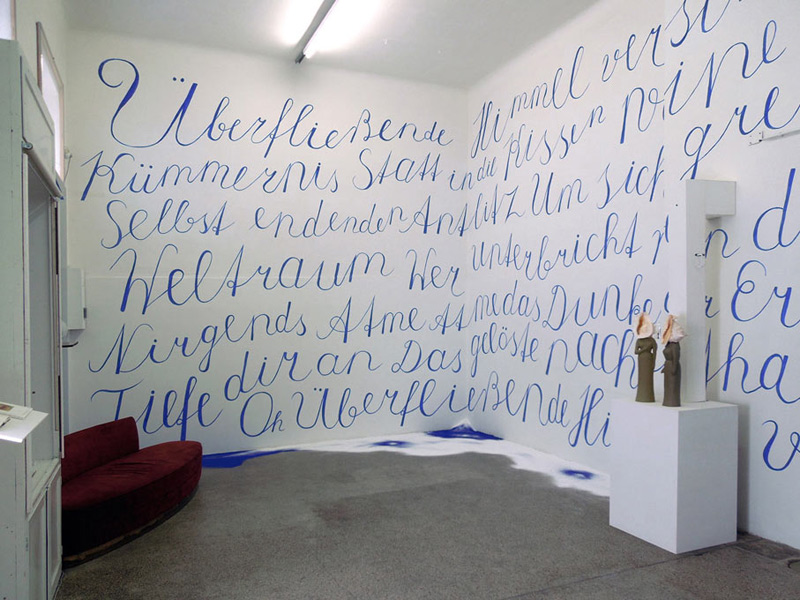 Überfließende Himmel vers
Kümmernis Statt in die Kissen weine
Selbst endenden Antlitz Um sich gre
Weltraum Wer unterbricht n d
Nirgends Atme Atme das Dunke r Er
Tiefe dir an Das gelöste nach tha
Oh Überfließende Hi